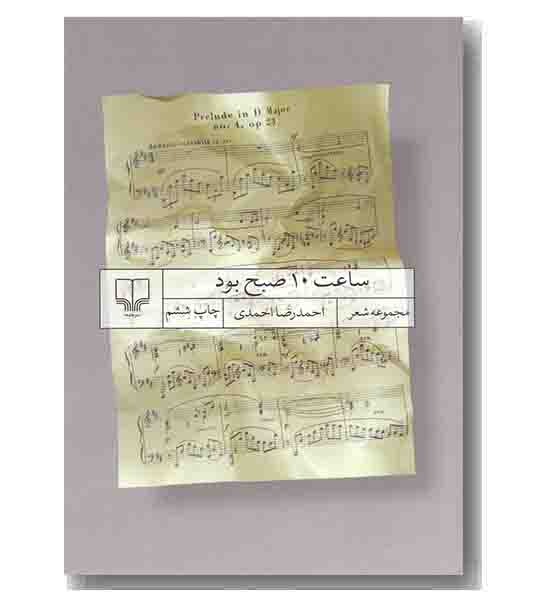 Prelude in D Major
no. 4, op 23
ساعت ۱۰ صبح بود
مجموعه شعر احمدرضا احمدی چاپ ششم